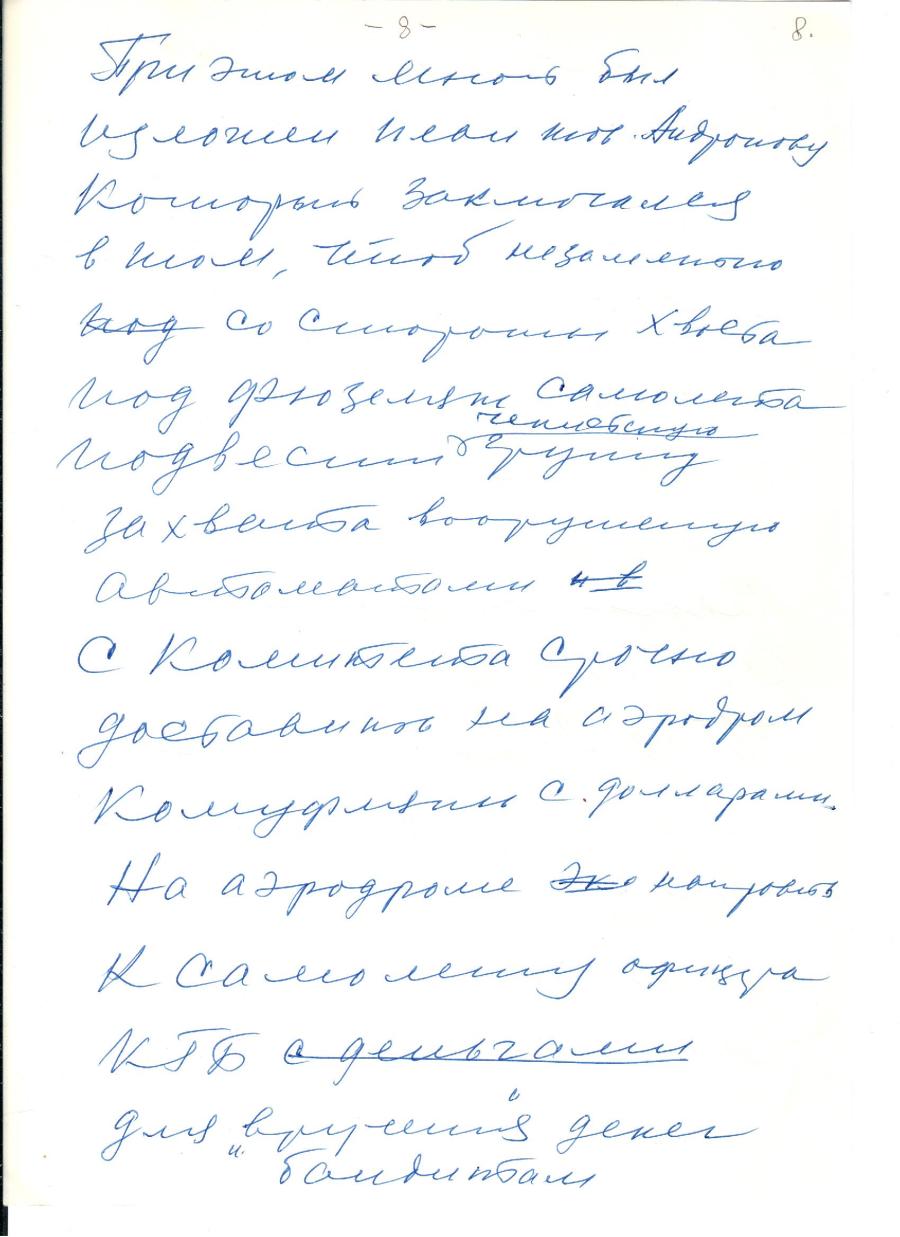 - 8 -
8.
При этом мною был
изложен план тов. Андропову
который заключался
в том, чтоб незаметно
под со стороны хвоста
под фюзеляж самолета
чекистскую
подвесить группу
захвата вооруженую
автоматами и в
С Комитета срочно
доставить на аэродром
Комуфляжи с долларами.
На аэродроме направить
к самолету офицера
КГБ с деньгами
для "вручения" денег
бандитам